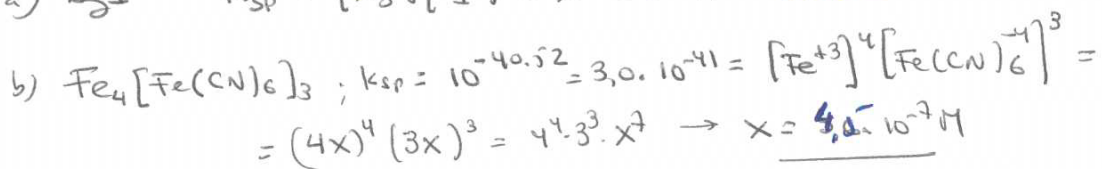 b) Fe₄[Fe(CN)6]₃ ; Ksp = 10^-40.52 = 3,0. 10^-41 = [Fe^+3]^4 [Fe(CN)6^-4]^3 =
= (4x)^4 (3x)^3 = 4^4·3^3·x^7 → x = 10^-7 M